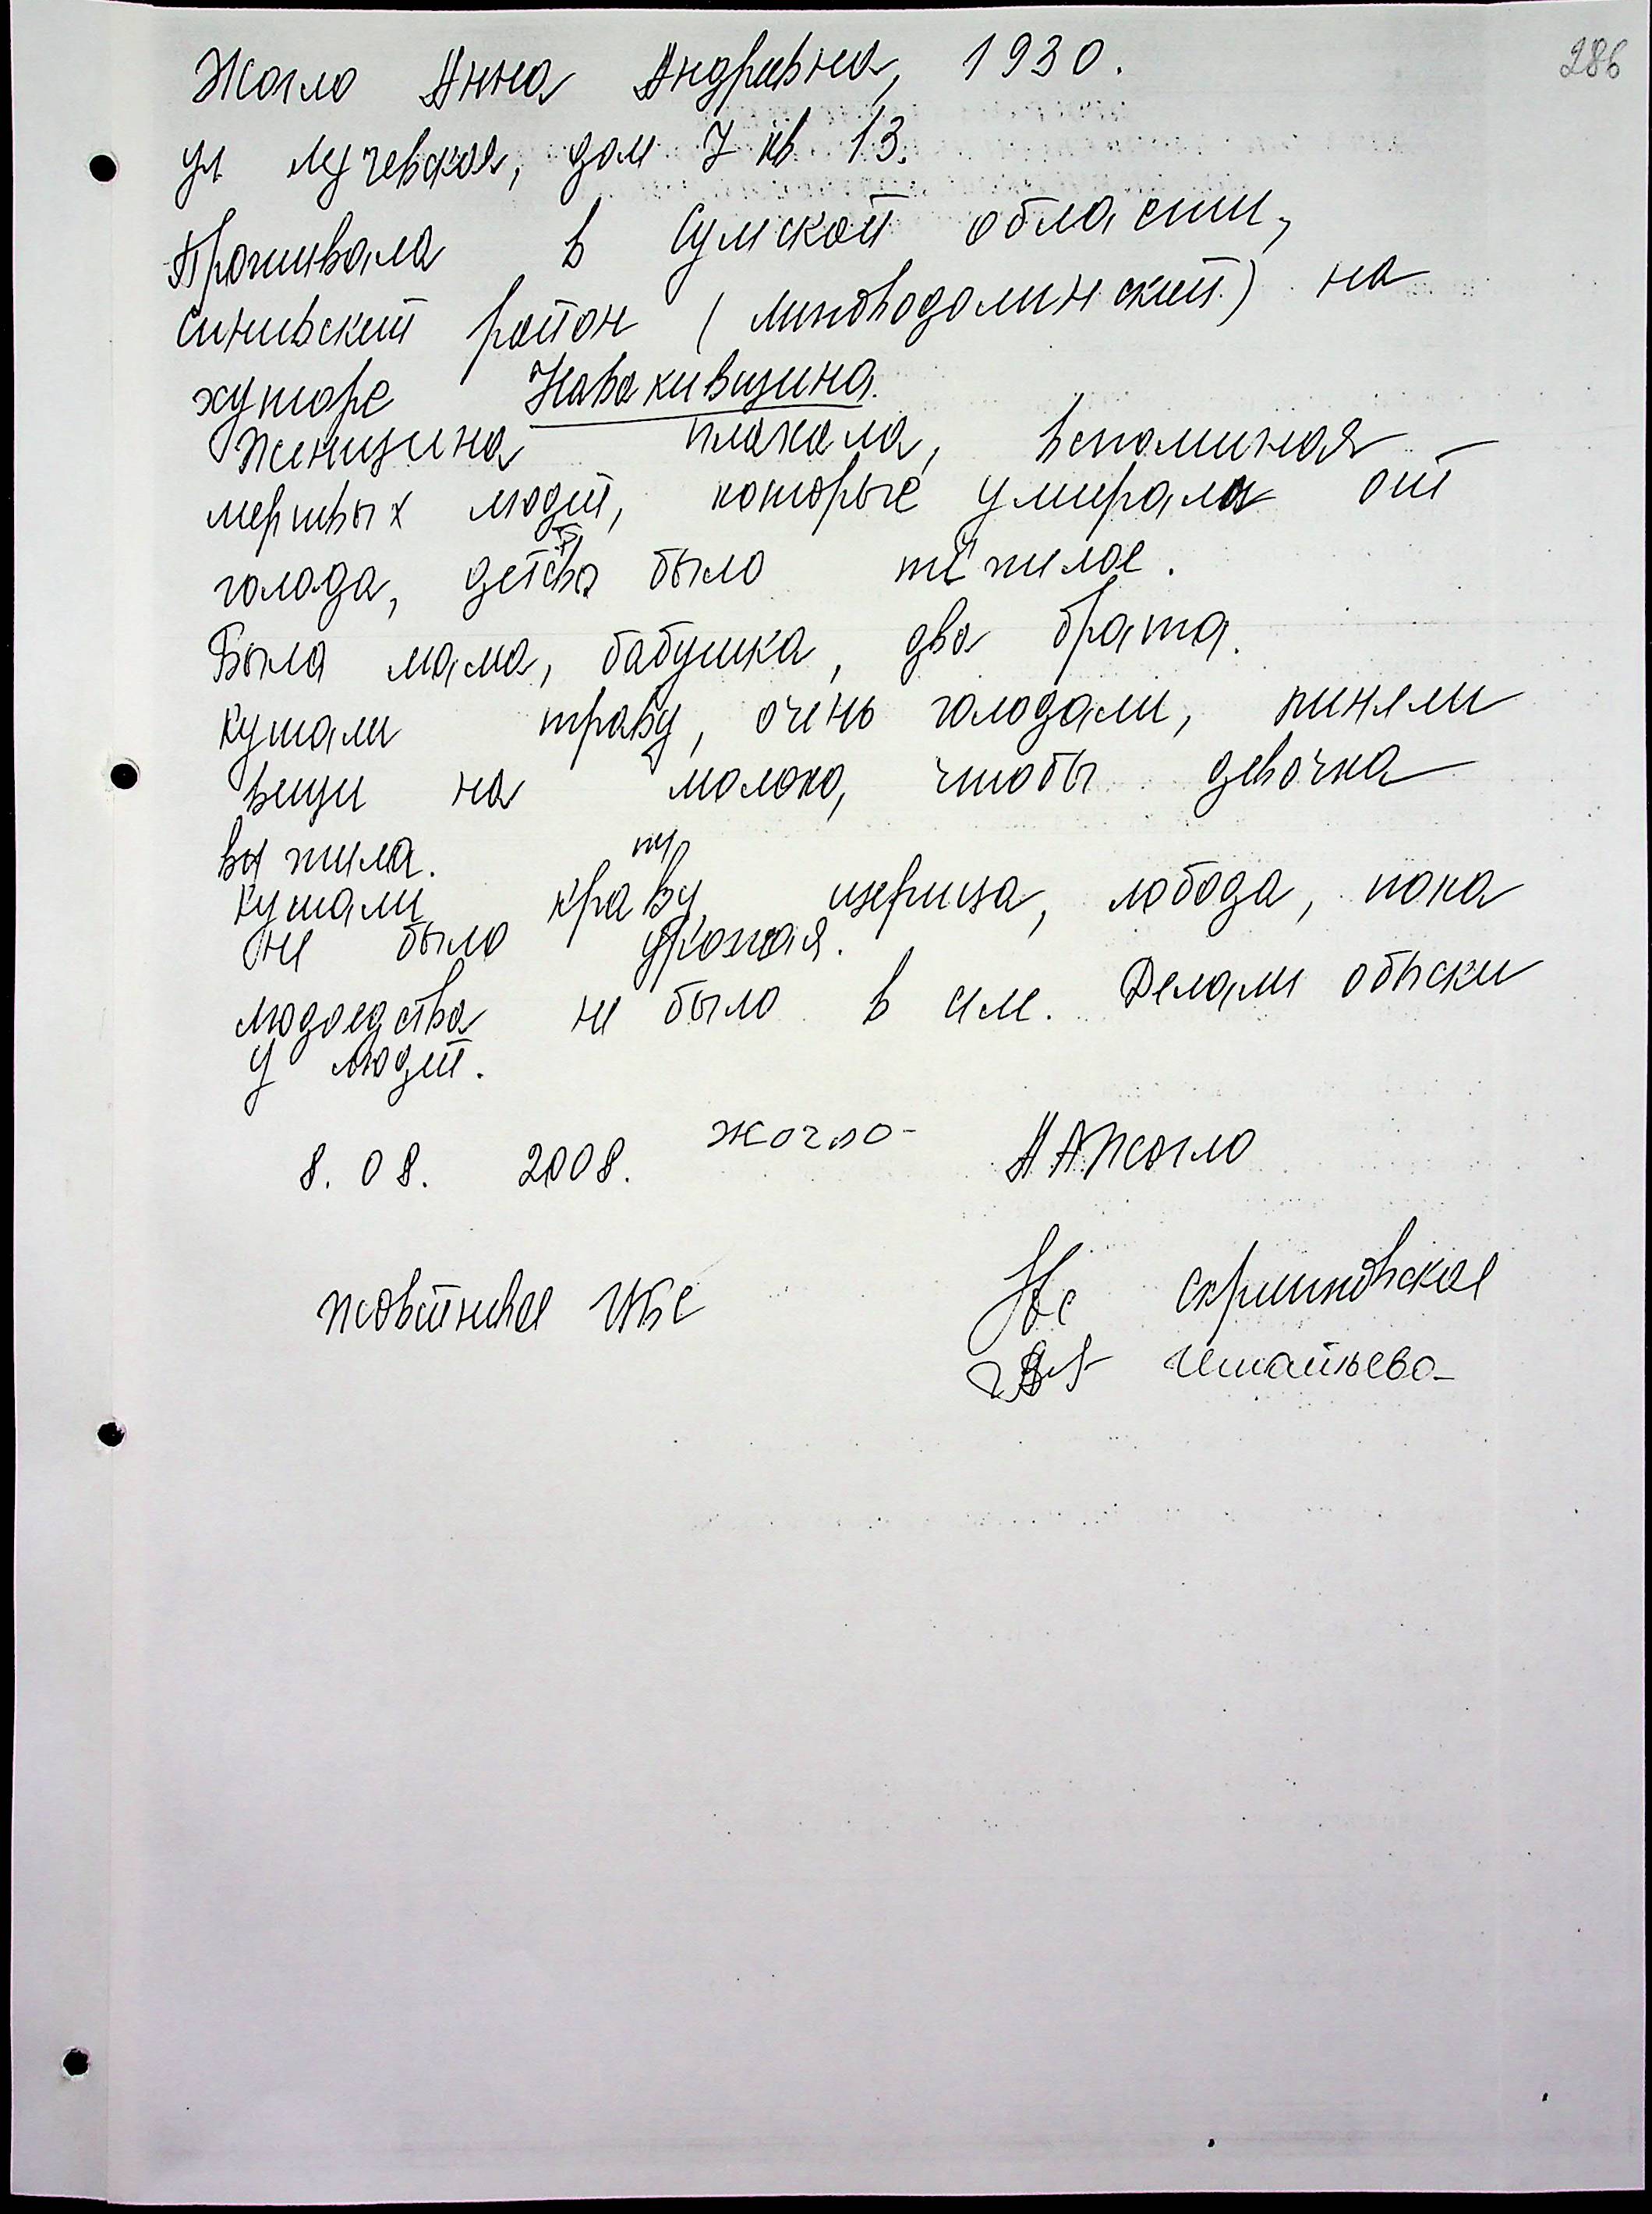 286
Жогло Анна Андреевна, 1930.
ул Лучевская, дом 7 кв 13.
Проживала в Сумской области,
Синивский район (Липоводолинский) на
хуторе Новакивщина.
Женщина плакала, вспоминая
мертвых людей, которые умирали от
голода, детство было тяжилое.
Была мама, бабушка, два брата.
Кушали траву, очень голодали, миняли
вещи на молоко, чтобы девочка
выжила.
Кушали траву, щерица, лобода, пока
не было урожая.
Людоедства не было в силе. Делали обыски
у людей.
8.08.2008. Жогло А А Жогло
Жовтневая ЦБС Скрипковская
Игнатьева